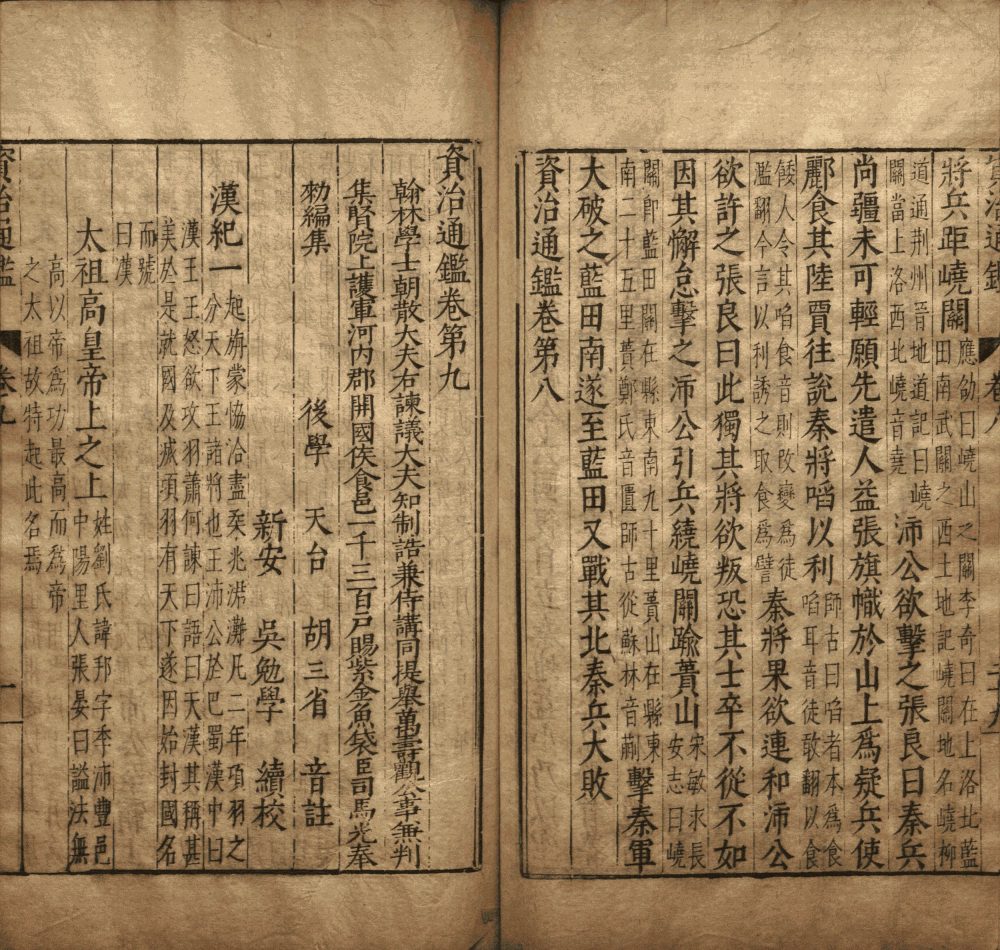 資治通鑑 卷八 二十九
將兵距嶢關應劭曰嶢山之關李奇曰在上洛北藍田南武關之西土地記嶢關地名嶢柳
道通荆州晉地道記曰嶢關當上洛西北嶢音堯沛公欲擊之張良曰秦兵
尚疆未可輕願先遣人益張旗幟於山上爲疑兵使
酈食其陸賈往說秦將啗以利師古曰啗者本爲食啗耳音徒敢翻以食
餧人令其啗食音則改變爲徒濫翻今言以利誘之取食爲譬秦將果欲連和沛公
欲許之張良曰此獨其將欲叛恐其士卒不從不如
因其懈怠擊之沛公引兵繞嶢關踰蕢山宋敏求長安志曰嶢
關卽藍田關在縣東南九十里蕢山在縣東南二十五里蕢鄭氏音匱師古從蘇林音蒯擊秦軍
大破之藍田南遂至藍田又戰其北秦兵大敗
資治通鑑卷第八
資治通鑑卷第九
翰林學士朝散大夫右諫議大夫知制誥兼侍講同提舉萬壽觀公事兼判
集賢院上護軍河内郡開國侯食邑一千三百戸賜紫金魚袋臣司馬光奉
勑編集
後學 天台 胡三省 音註
新安 吳勉學 續校
漢紀一起旃蒙協洽盡柔兆涒灘凡二年項羽之分天下王諸將也王沛公於巴蜀漢中曰
漢王王怒欲攻羽蕭何諫曰語曰天漢其稱甚美於是就國及滅項羽有天下遂因始封國名
而號曰漢
太祖高皇帝上之上姓劉氏諱邦字季沛豐邑中陽里人張晏曰謚法無
高以帝爲功最高而爲帝之太祖故特起此名焉
資治通鑑 卷九 一